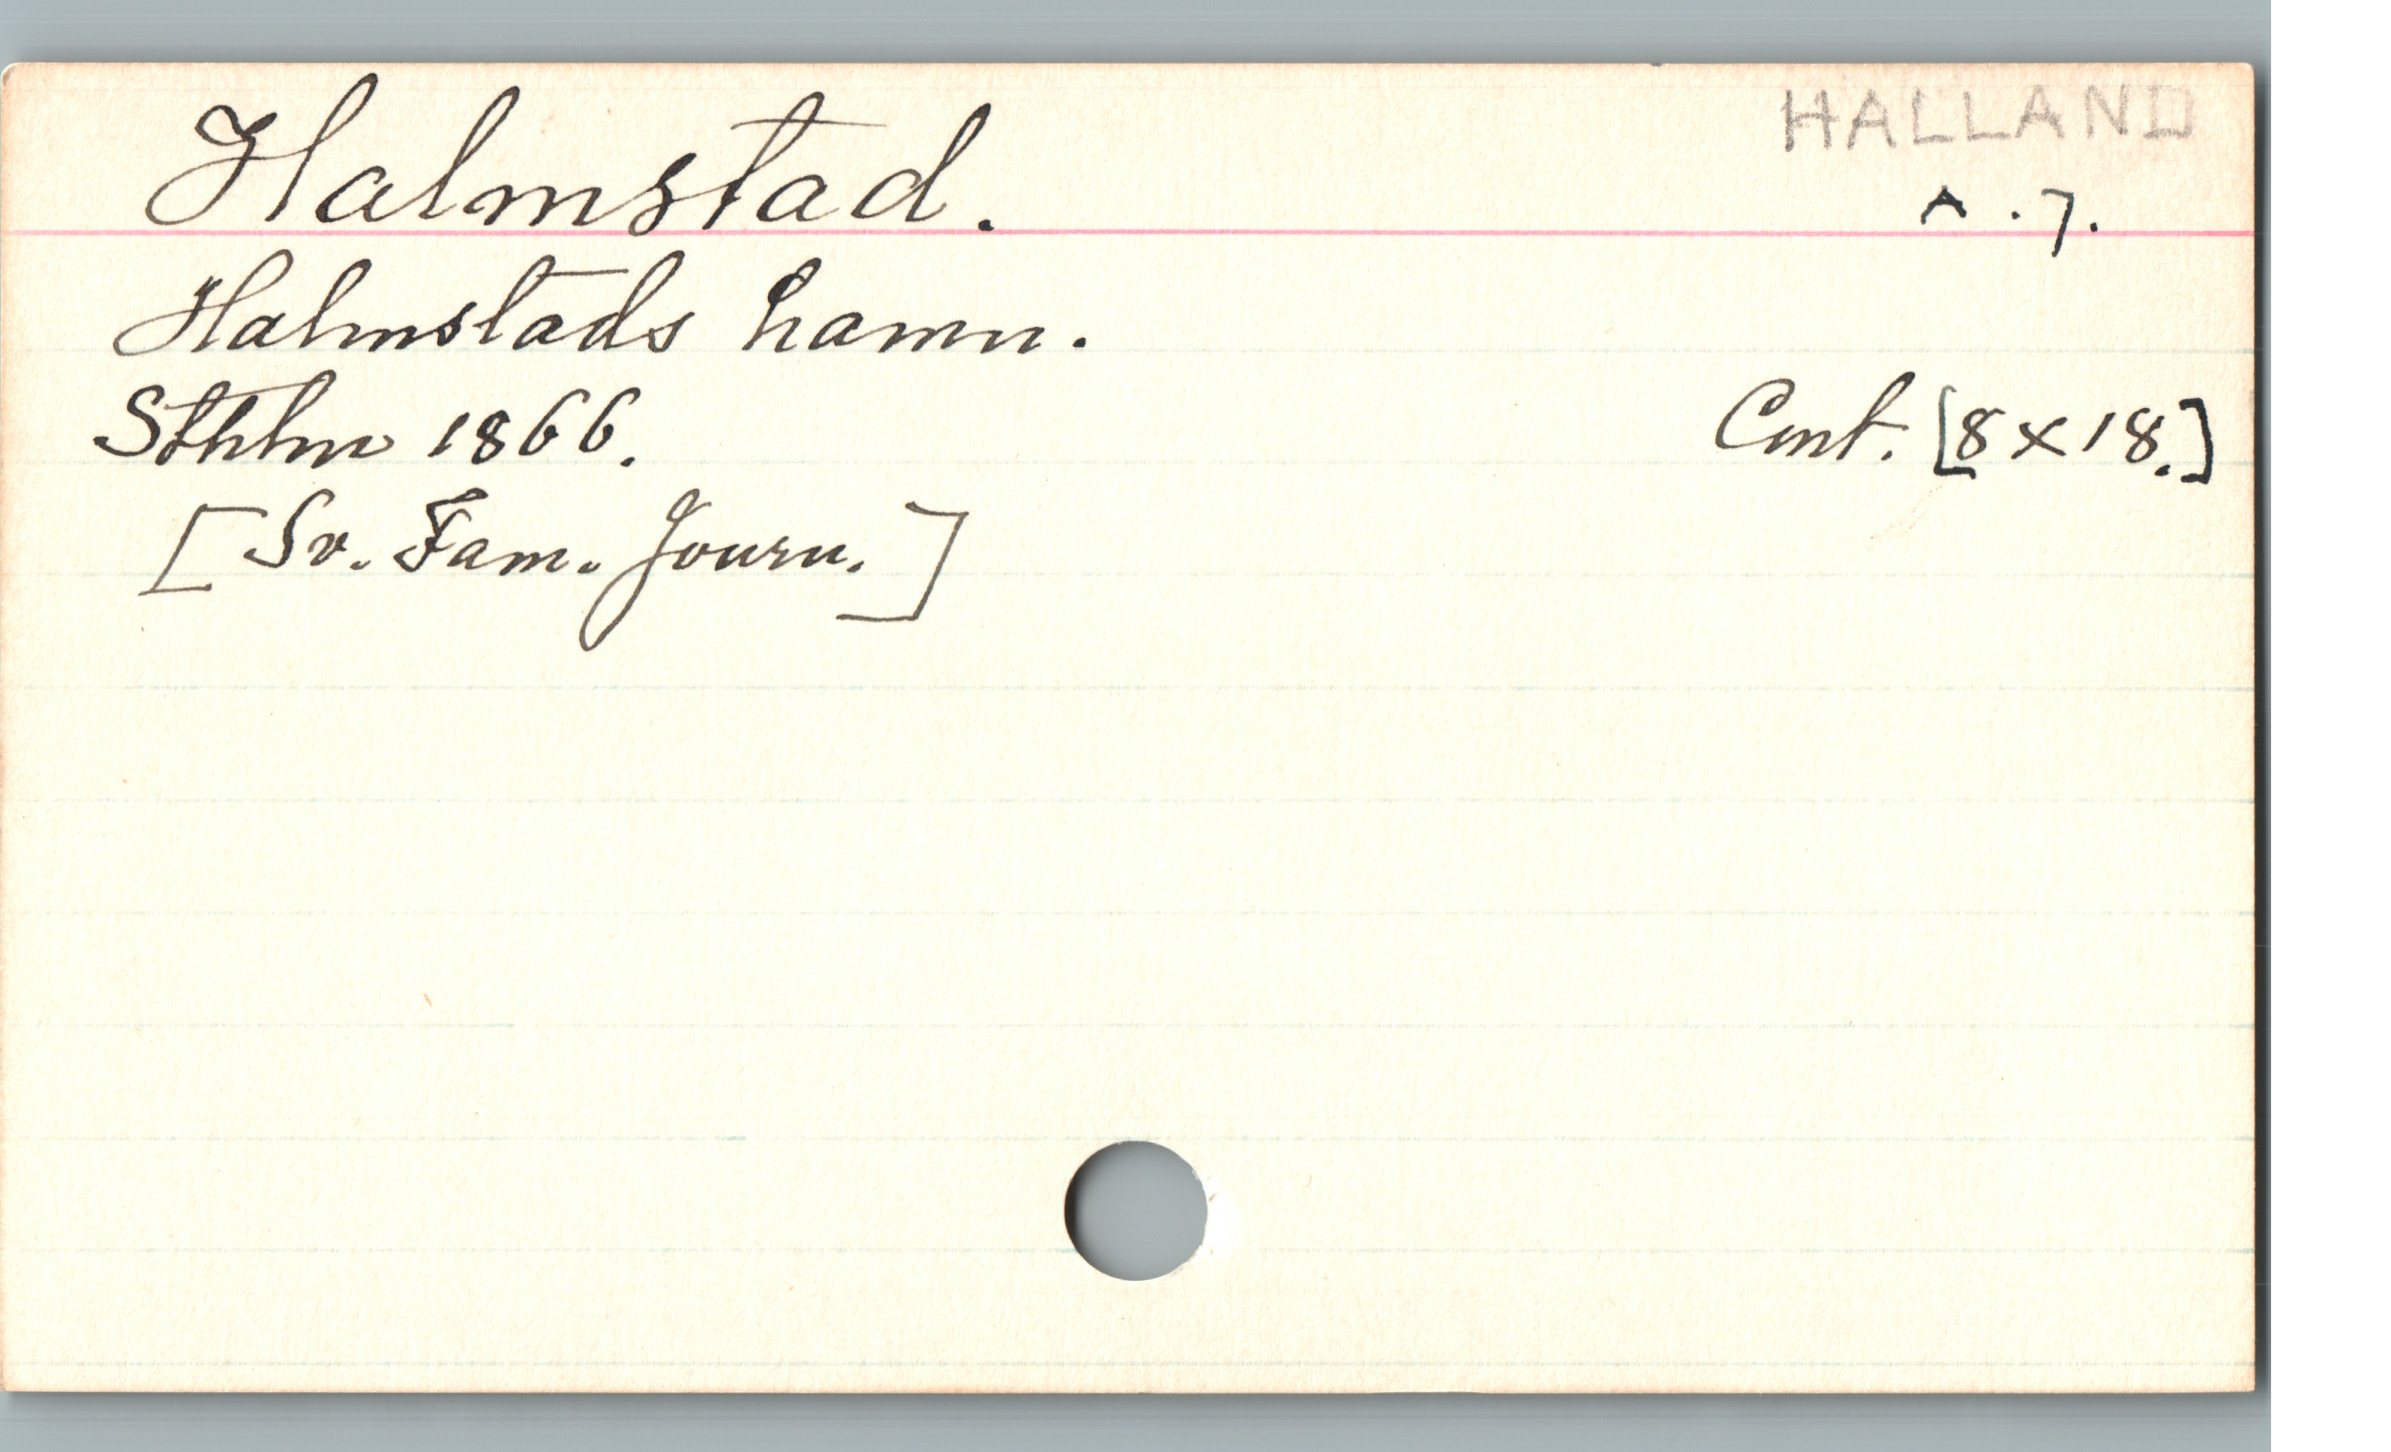 HALLAND
Halmstad. A.7.
Halmstads hamn.
Sthlm 1866. Cmt. [8x18.]
[Sv. Fam. Journ.]